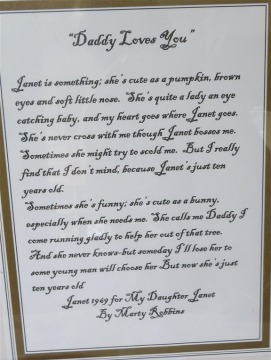 "Daddy Loves You"
Janet is something; she's cute as a pumpkin, brown
eyes and soft little nose. She's quite a lady an eye
catching baby, and my heart goes where Janet goes.
She's never cross with me though Janet bosses me.
Sometimes she might try to scold me. But I really
find that I don't mind, because Janet's just ten
years old.
Sometimes she's funny; she's cute as a bunny,
especially when she needs me. She calls me Daddy I
come running gladly to help her out of that tree.
And she never knows-but someday I'll lose her to
some young man will choose her But now she's just
ten years old
Janet 1969 for My Daughter Janet
By Marty Robbins